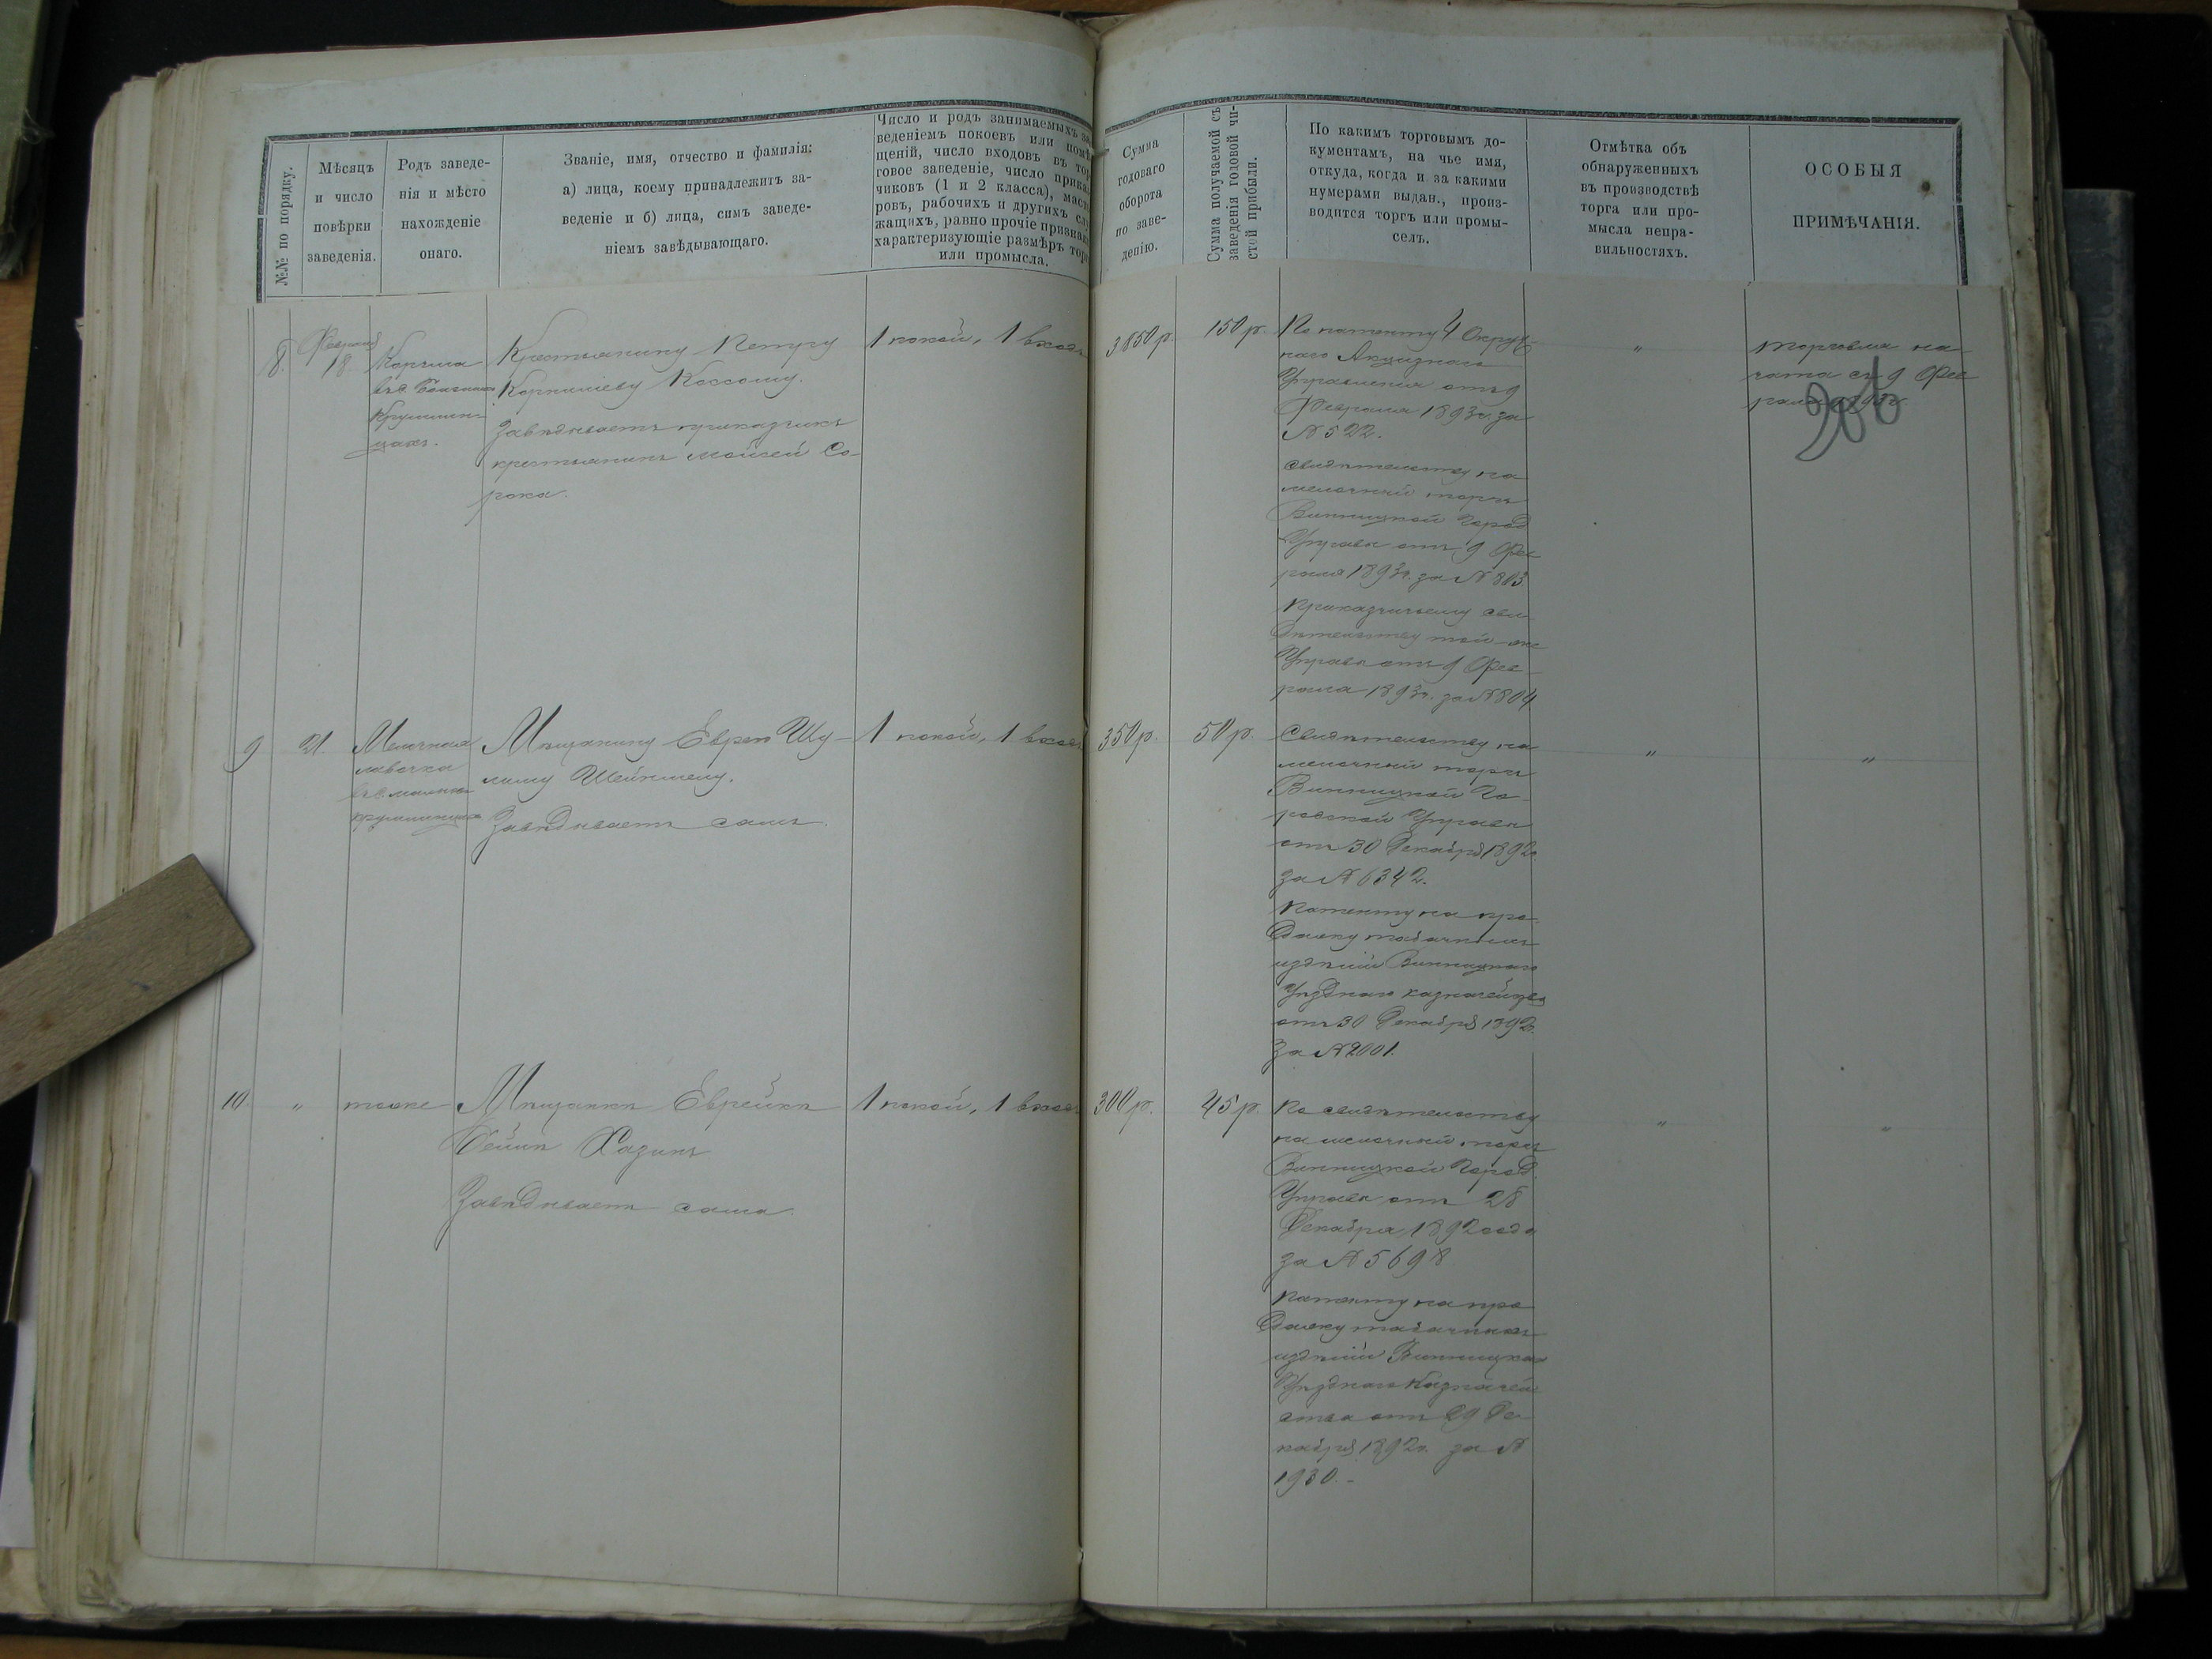 №№ по порядку.
Мѣсяцъ
и число
повѣрки
заведенія.
Родъ заведе-
нія и мѣсто
нахожденіе
онаго.
Званіе, имя, отчество и фамилія:
а) лица, коему принадлежитъ за-
веденіе и б) лица, симъ заведе-
ніемъ завѣдывающаго.
Число и родъ занимаемыхъ за
веденіемъ покоевъ или помѣ
щеній, число входовъ въ тор
говое заведеніе, число прика
чиковъ (1 и 2 класса), маст
ровъ, рабочихъ и другихъ слу
жащихъ, равно прочіе признаки
характеризующіе размѣръ торг
или промысла.
Сумма
годоваго
оборота
по заве-
денію.
Сумма получаемой съ
заведенія годовой чи-
стой прибыли.
По какимъ торговымъ до-
кументамъ, на чье имя,
откуда, когда и за какими
нумерами выдан., произ-
водится торгъ или промы-
селъ.
Отмѣтка объ
обнаруженныхъ
въ производствѣ
торга или про-
мысла непра-
вильностяхъ.
ОСОБЫЯ
ПРИМѢЧАНІЯ.
8.
Февраля
18
Корчма
въ с.
Крушлин-
цахъ.
Крестьянину Петру
Корнилiеву Коссому.
Завѣдываетъ приказчикъ
крестьянинъ Мойсей Со-
рока.
1 покой, 1 входъ
3850 р.
150 р.
По патенту 4 Округ
наго Акцизнаго
Управленія отъ 9
Февраля 1893 г. за
№ 522.
Свидѣтельству на
мелочный торгъ
Винницкой Город
Управы отъ 9 Фев
раля 1893 г. за № 803.
Приказчичьему сви
дѣтельству той-же
Управы отъ 9 Фев-
раля 1893 г. за № 804
"
Торговля на-
чата съ 9 Фев
9
21.
Мелочная
лавочка
въ с. Малых
Крушлинцахъ
Мѣщанину Еврею Шу-
лиму
Завѣдываетъ самъ.
1 покой, 1 входъ
350 р.
50 р.
Свидѣтельству на
мелочный торгъ
Винницкой Го-
родской Управы
отъ 30 Декабря 1892 г.
за № 6342.
Патенту на про-
дажу табачныхъ
издѣлій Винницкаго
Уѣзднаго Казначейства
отъ 30 Декабря 1892 г.
за № 2001.
"
"
10.
"
тоже
Мѣщанкѣ Еврейкѣ
Бейлѣ Хазинъ
Завѣдываетъ сама.
1 покой, 1 входъ
300 р.
45 р.
По свидѣтельству
на мелочный торгъ
Винницкой Город.
Управы отъ 28
Декабря 1892 года
за № 5698
Патенту на про
дажу табачныхъ
издѣлій Винницкаго
Уѣзднаго Казначей
ства отъ 29 Де-
кабря 1892 г. за №
1930.-
"
"